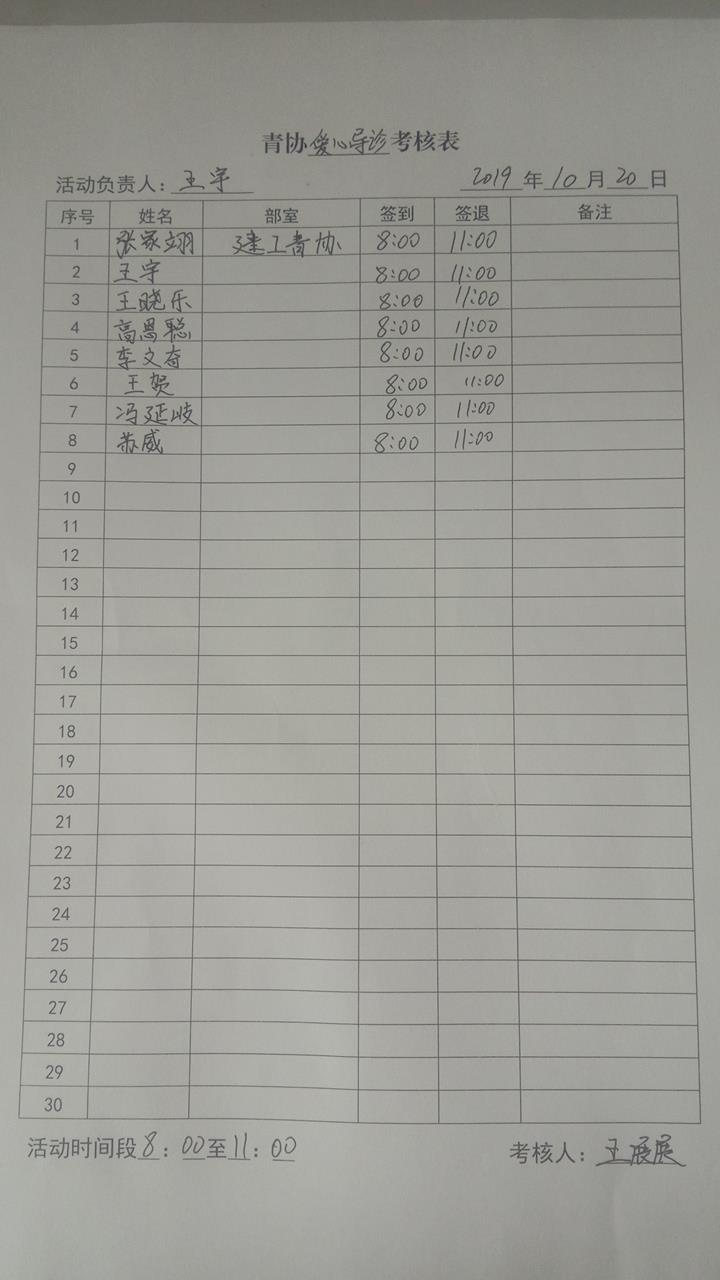 青协爱心导诊考核表
活动负责人：王宇 2019年10月20日
序号 姓名 部室 签到 签退 备注
1 张家翊 建工青协 8:00 11:00
2 王宇 8:00 11:00
3 王晓乐 8:00 11:00
4 高恩聪 8:00 11:00
5 李文奇 8:00 11:00
6 王贺 8:00 11:00
7 冯延岐 8:00 11:00
8 苏威 8:00 11:00
9
10
11
12
13
14
15
16
17
18
19
20
21
22
23
24
25
26
27
28
29
30
活动时间段8：00至11：00 考核人：王展展